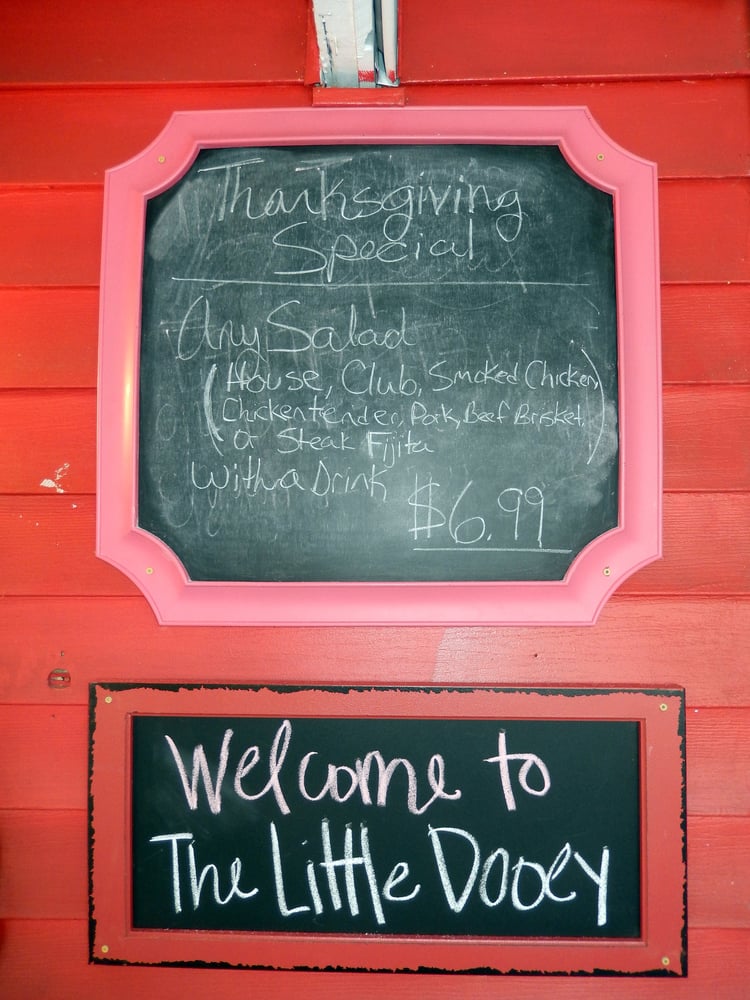 Thanksgiving
Special
Any Salad
(House, Club, Smoked Chicken,
Chickentender, Pork, Beef Brisket,
or Steak Fijita)
with a Drink
$6.99
Welcome to
The Little Dooey